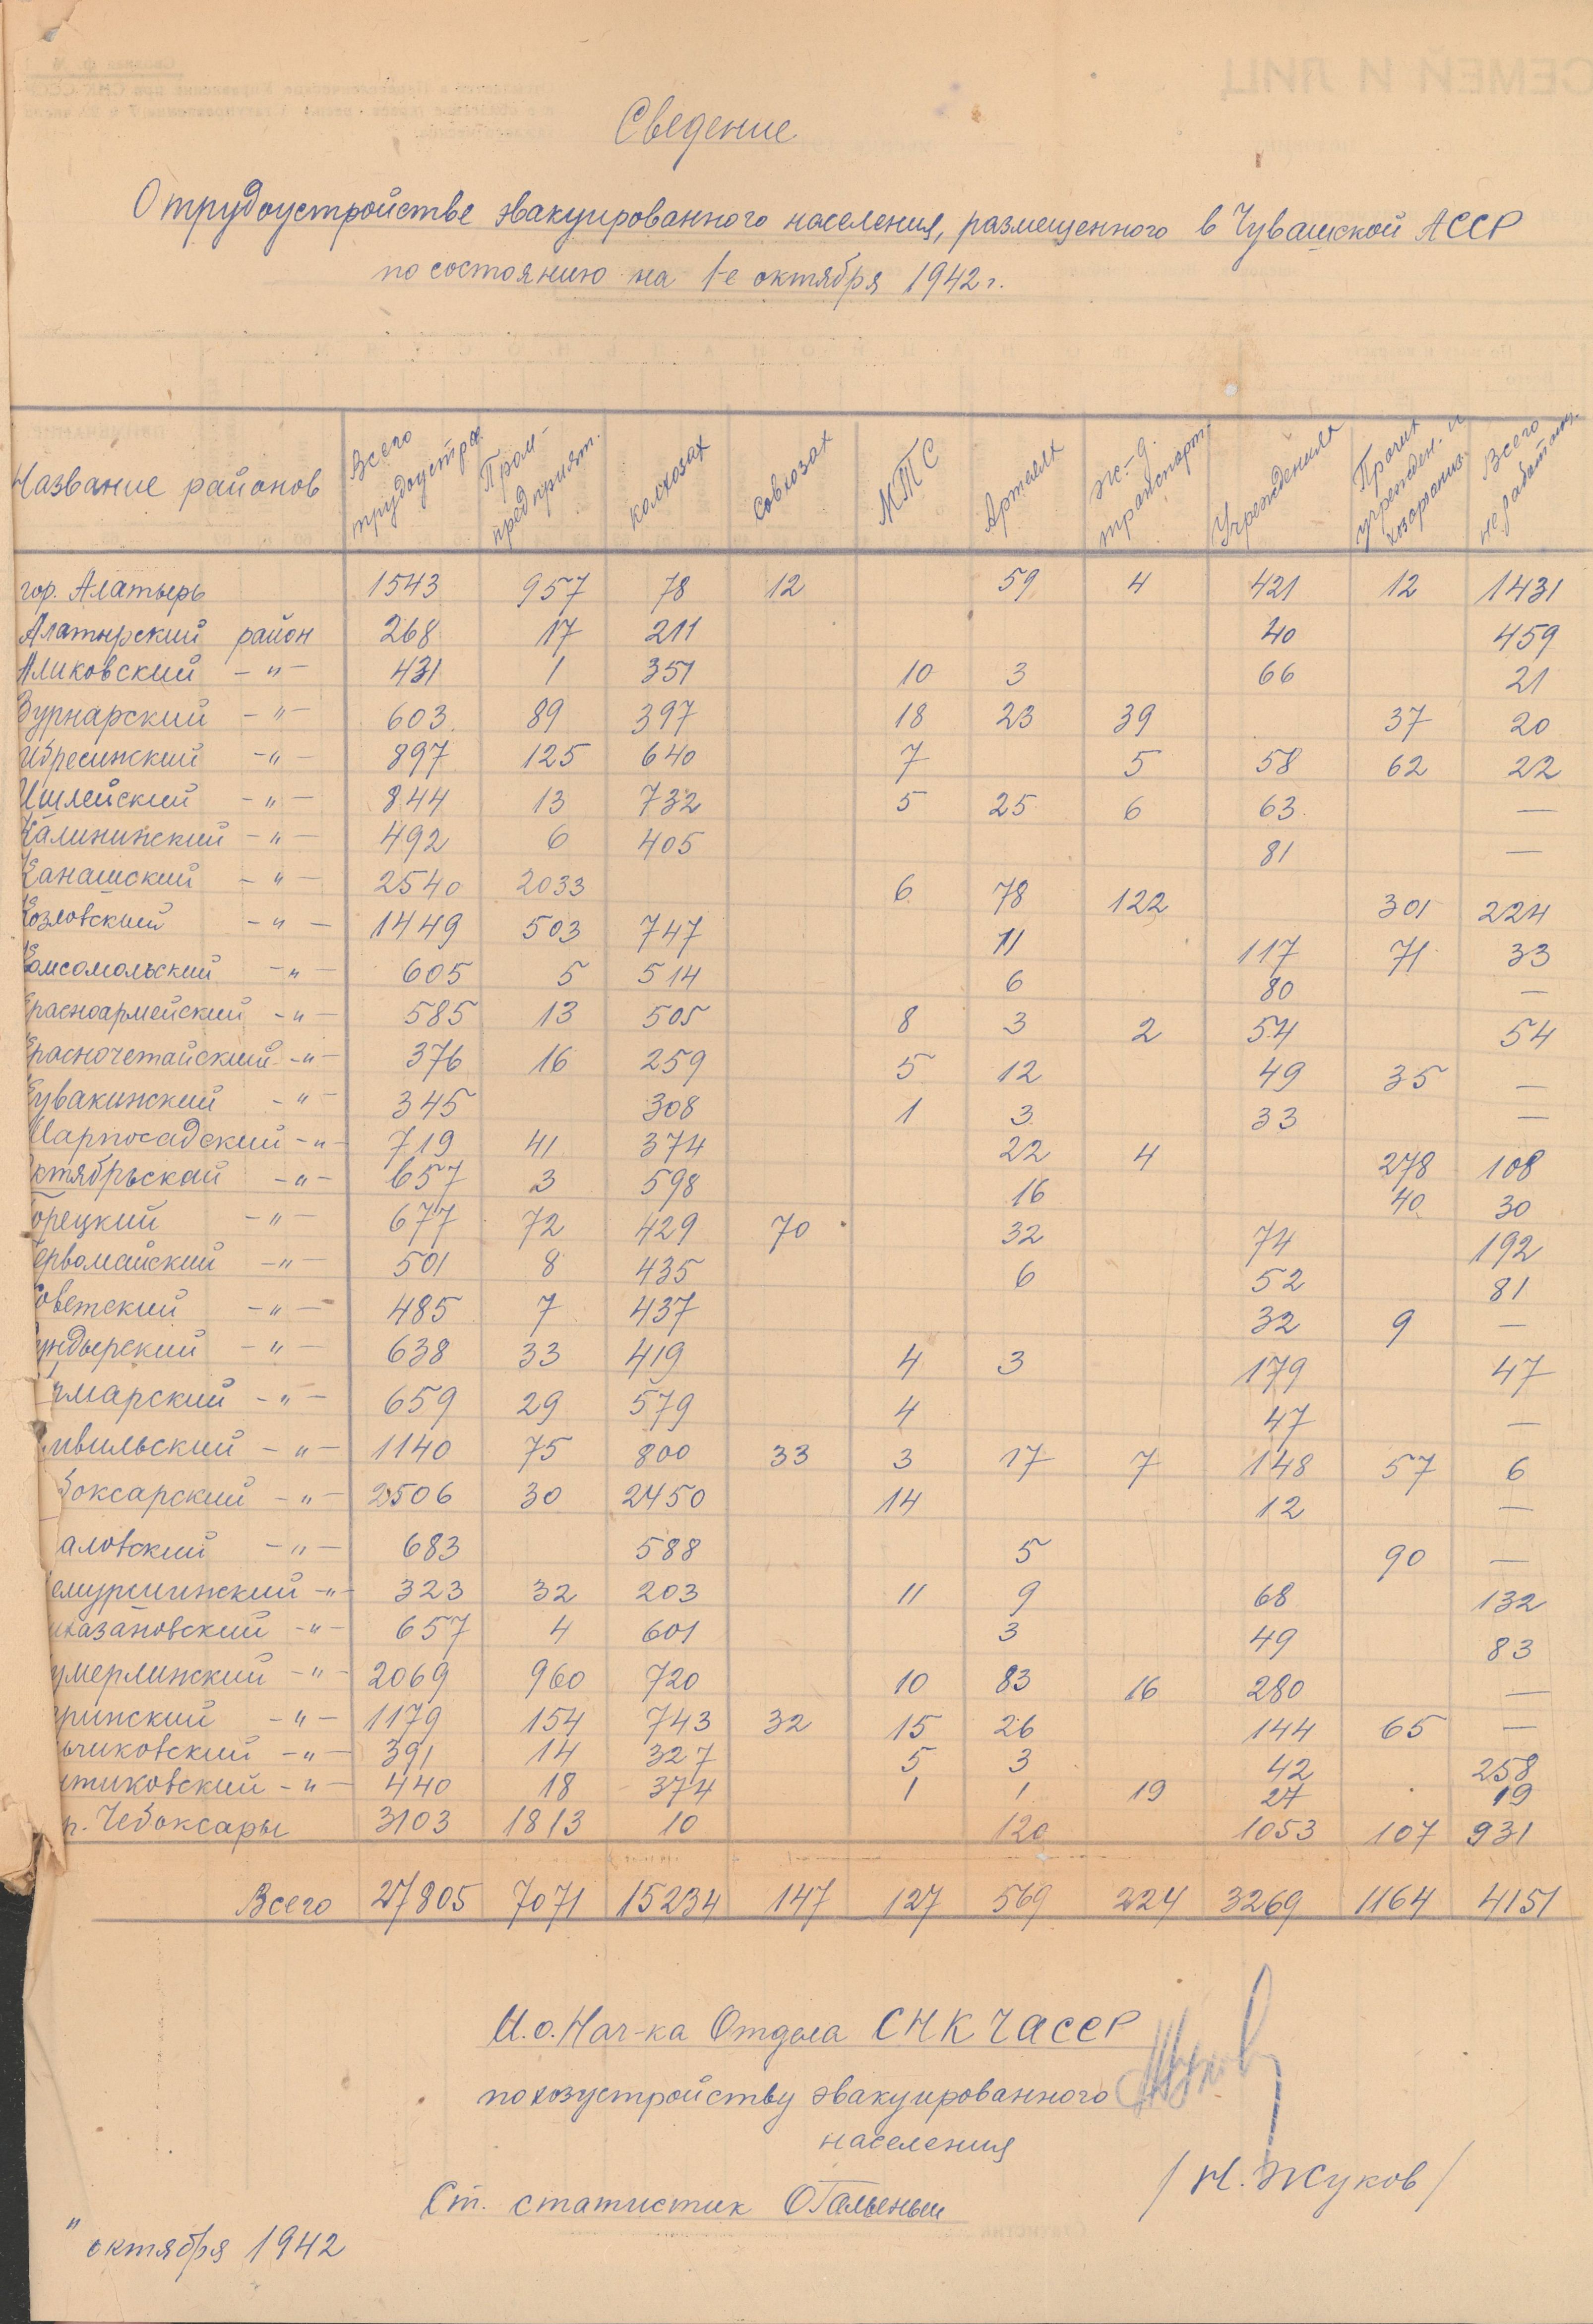 Сведение
О трудоустройстве эвакуированного населения, размещенного в Чувашской АССР
по состоянию на 1-е октября 1942 г.
Название районов | Всего трудоустр. | Пром-предприят. | колхозах | совхозах | МТС | Артелях | ж.-д. транспорт. | Учреждениях | Прочих учрежден. и хозорганиз. | Всего неработающ.
гор. Алатырь 1543 957 78 12 59 4 421 12 1431
Алатырский район 268 17 211 40 459
Аликовский -"- 431 1 351 10 3 66 21
Вурнарский -"- 603 89 397 18 23 39 37 20
Ибресинский -"- 897 125 640 7 5 58 62 22
Ишлейский -"- 844 13 732 5 25 6 63 —
Калининский -"- 492 6 405 81 —
Канашский -"- 2540 2033 6 78 122 301 224
Козловский -"- 1449 503 747 11 117 71 33
Комсомольский -"- 605 5 514 6 80 —
Красноармейский -"- 585 13 505 8 3 2 54 54
Красночетайский -"- 376 16 259 5 12 49 35 —
Кувакинский -"- 345 308 1 3 33 —
Марпосадский -"- 719 41 374 22 4 278 108
ктябрьскай -"- 657 3 598 16 40 30
орецкий -"- 677 72 429 70 32 74 192
ервомайский -"- 501 8 435 6 52 81
оветский -"- 485 7 437 32 9 —
ундырский -"- 638 33 419 4 3 179 47
рмарский -"- 659 29 579 4 47 —
ивильский -"- 1140 75 800 33 3 17 7 148 57 6
боксарский -"- 2506 30 2450 14 12 —
аловский -"- 683 588 5 90 —
емуршинский -"- 323 32 203 11 9 68 132
иказановский -"- 657 4 601 3 49 83
умерлинский -"- 2069 960 720 10 83 16 280 —
дринский -"- 1179 154 743 32 15 26 144 65 —
ьчиковский -"- 391 14 327 5 3 42 258
нтиковский -"- 440 18 374 1 1 19 27 19
р. Чебоксары 3103 1813 10 120 1053 107 931
Всего 27805 7071 15234 147 127 569 224 3269 1164 4151
И.о. Нач-ка Отдела СНК ЧАССР
по хозустройству эвакуированного
населения
/Н. Жуков/
Ст. статистик
" октября 1942